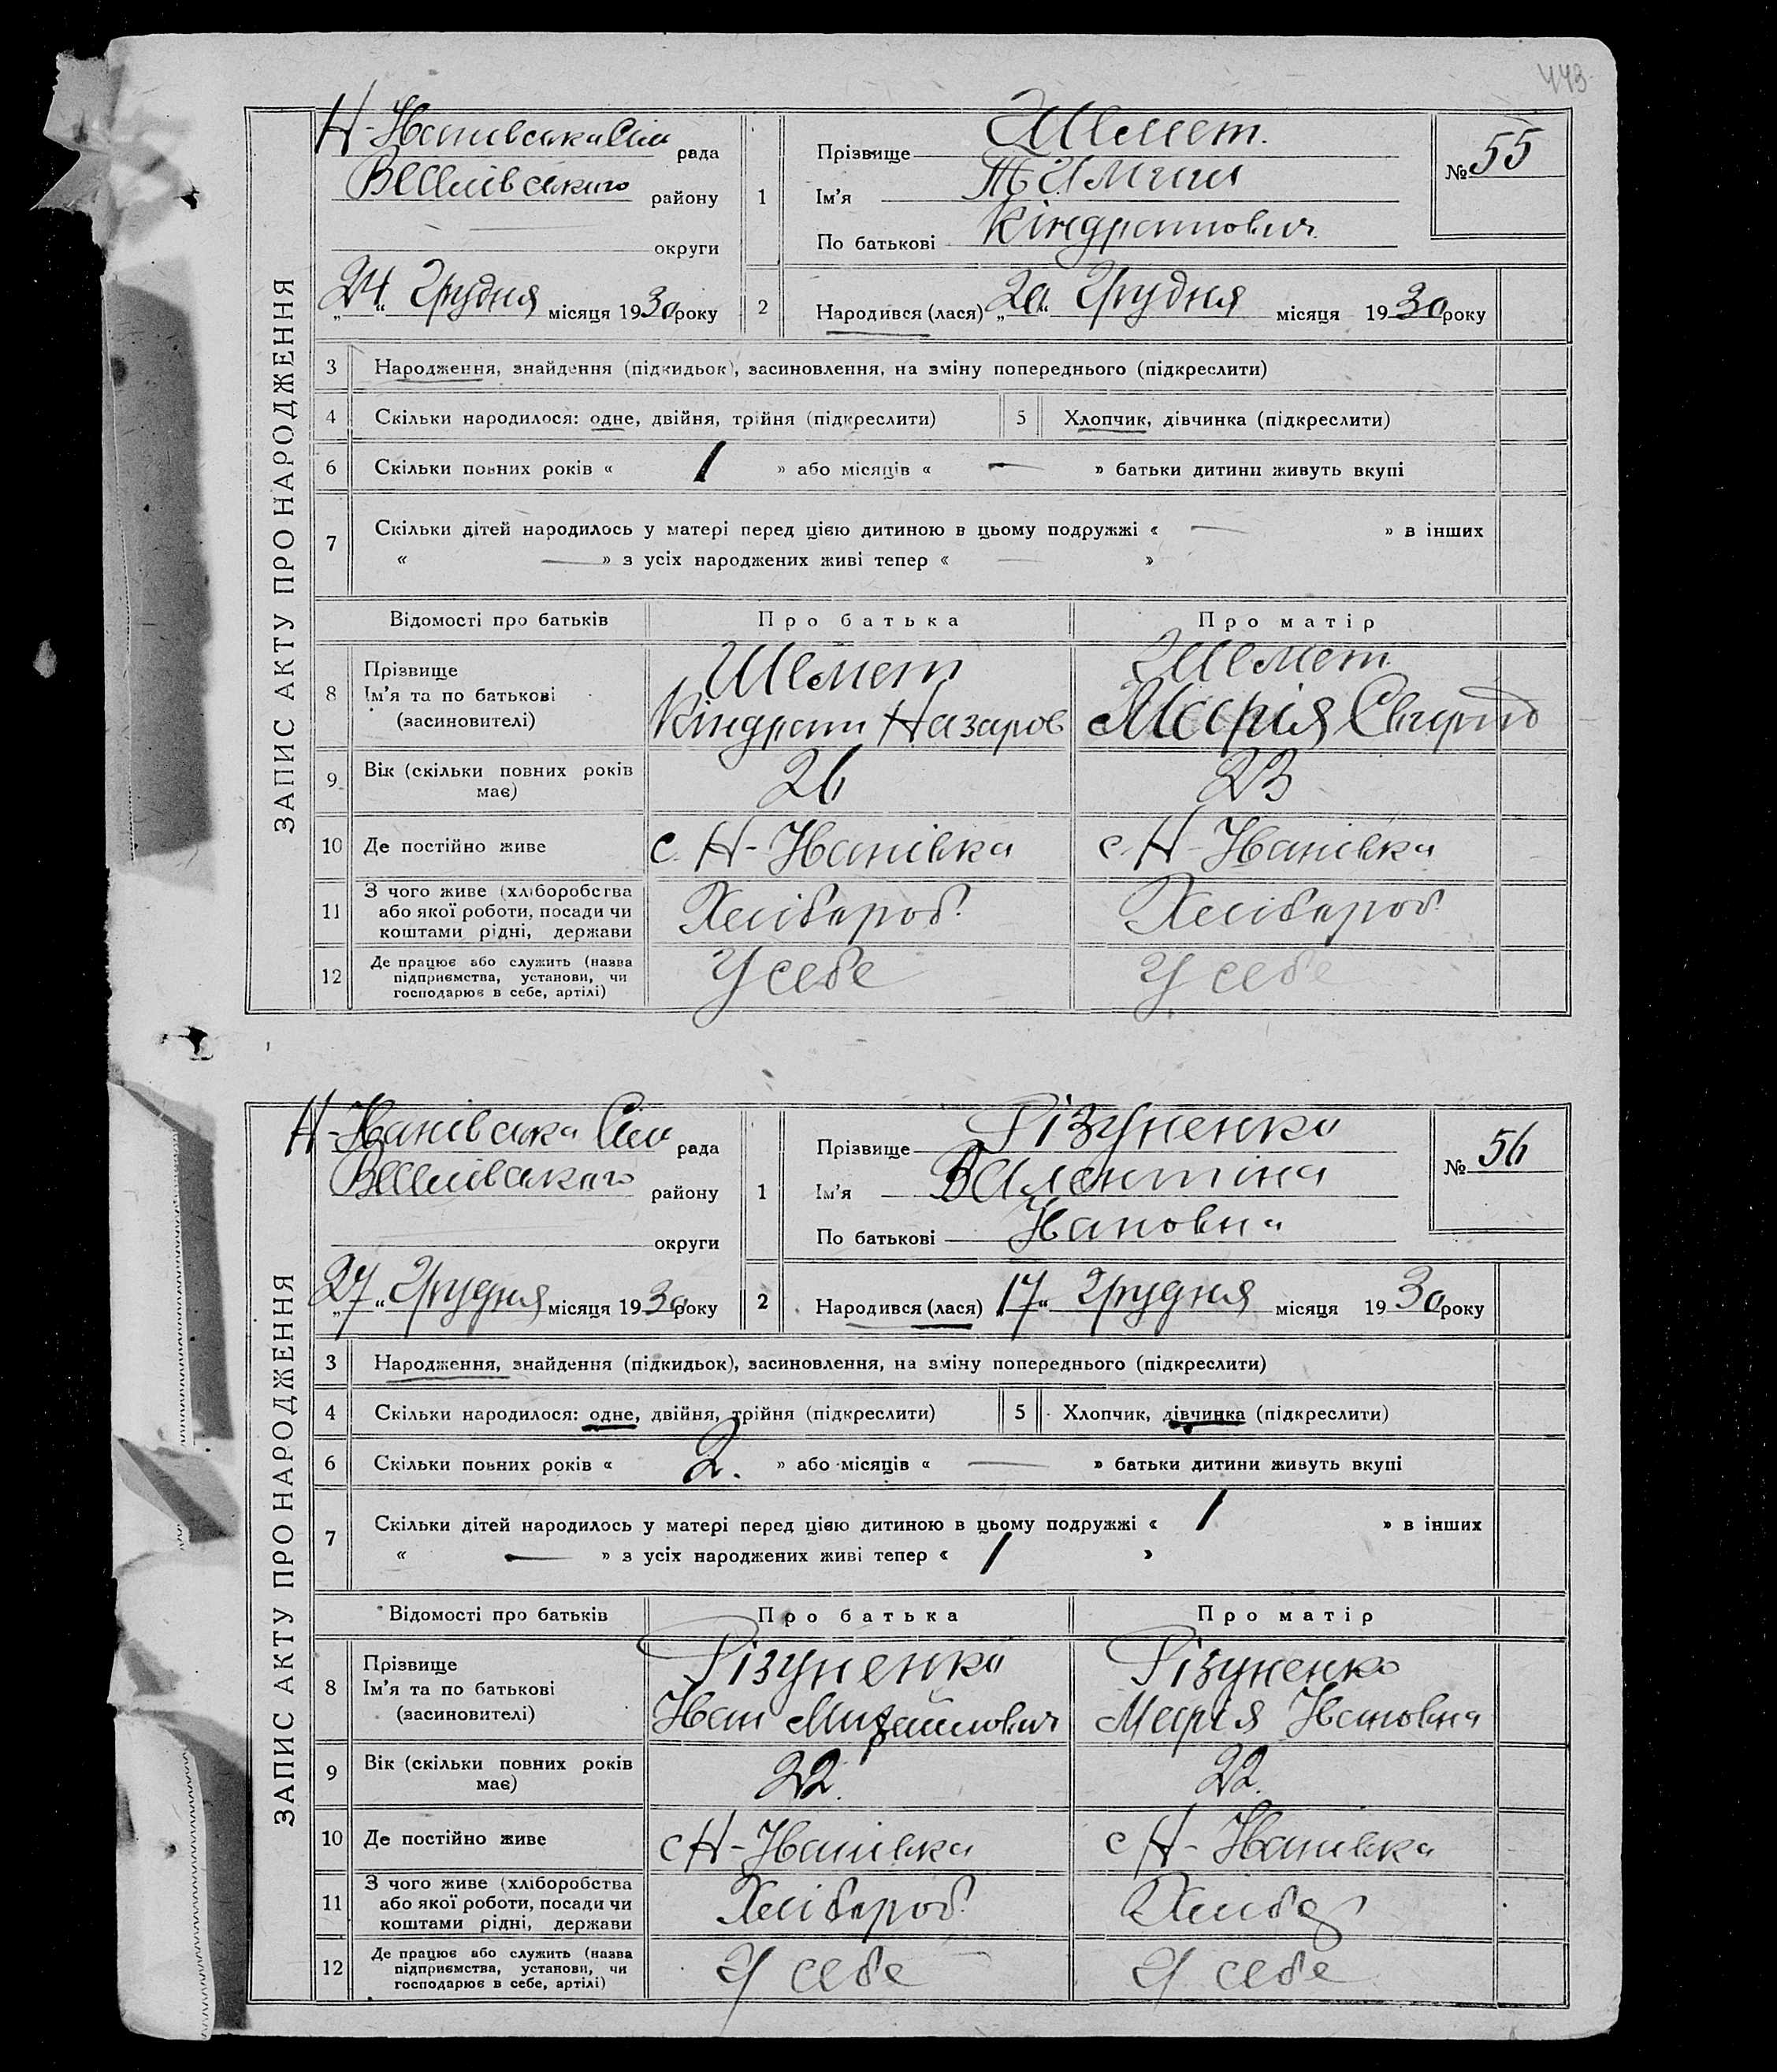 443
ЗАПИС АКТУ ПРО НАРОДЖЕННЯ
Н-Іванівська Сіл рада
Веселівського району
округи
„24“ Грудня місяця 1930 року
1
Прізвище Шемет.
Ім'я
По батькові Кіндратович
№ 55
2 Народився (лася) „20“ Грудня місяця 1930 року
3 Народження, знайдення (підкидьок), засиновлення, на зміну попереднього (підкреслити)
4 Скільки народилося: одне, двійня, трійня (підкреслити) 5 Хлопчик, дівчинка (підкреслити)
6 Скільки повних років « 1 » або місяців « — » батьки дитини живуть вкупі
7 Скільки дітей народилось у матері перед цією дитиною в цьому подружжі « — » в інших
« — » з усіх народжених живі тепер « — »
Відомості про батьків Про батька Про матір
8 Прізвище
Ім'я та по батькові
(засиновителі)
Шемет
Кіндрат Назаров
Шемет
Марія
9 Вік (скільки повних років має) 26 23
10 Де постійно живе с. Н-Іванівка с. Н-Іванівка
11 З чого живе (хліборобства
або якої роботи, посади чи
коштами рідні, держави
Хлібороб. Хлібороб.
12 Де працює або служить (назва
підприємства, установи, чи
господарює в себе, артілі)
У себе У себе
ЗАПИС АКТУ ПРО НАРОДЖЕННЯ
Н-Іванівська Сіл рада
Веселівського району
округи
„27“ Грудня місяця 1930 року
1
Прізвище Різуненко
Ім'я Валентіна
По батькові Івановна
№ 56
2 Народився (лася) „17“ Грудня місяця 1930 року
3 Народження, знайдення (підкидьок), засиновлення, на зміну попереднього (підкреслити)
4 Скільки народилося: одне, двійня, трійня (підкреслити) 5 Хлопчик, дівчинка (підкреслити)
6 Скільки повних років « 2. » або місяців « — » батьки дитини живуть вкупі
7 Скільки дітей народилось у матері перед цією дитиною в цьому подружжі « 1 » в інших
« — » з усіх народжених живі тепер « 1 »
Відомості про батьків Про батька Про матір
8 Прізвище
Ім'я та по батькові
(засиновителі)
Різуненко
Іван Михайлович
Різуненко
Марія Івановна
9 Вік (скільки повних років має) 22. 22.
10 Де постійно живе с Н-Іванівка с Н-Іванівка
11 З чого живе (хліборобства
або якої роботи, посади чи
коштами рідні, держави
Хлібороб.
12 Де працює або служить (назва
підприємства, установи, чи
господарює в себе, артілі)
У себе У себе